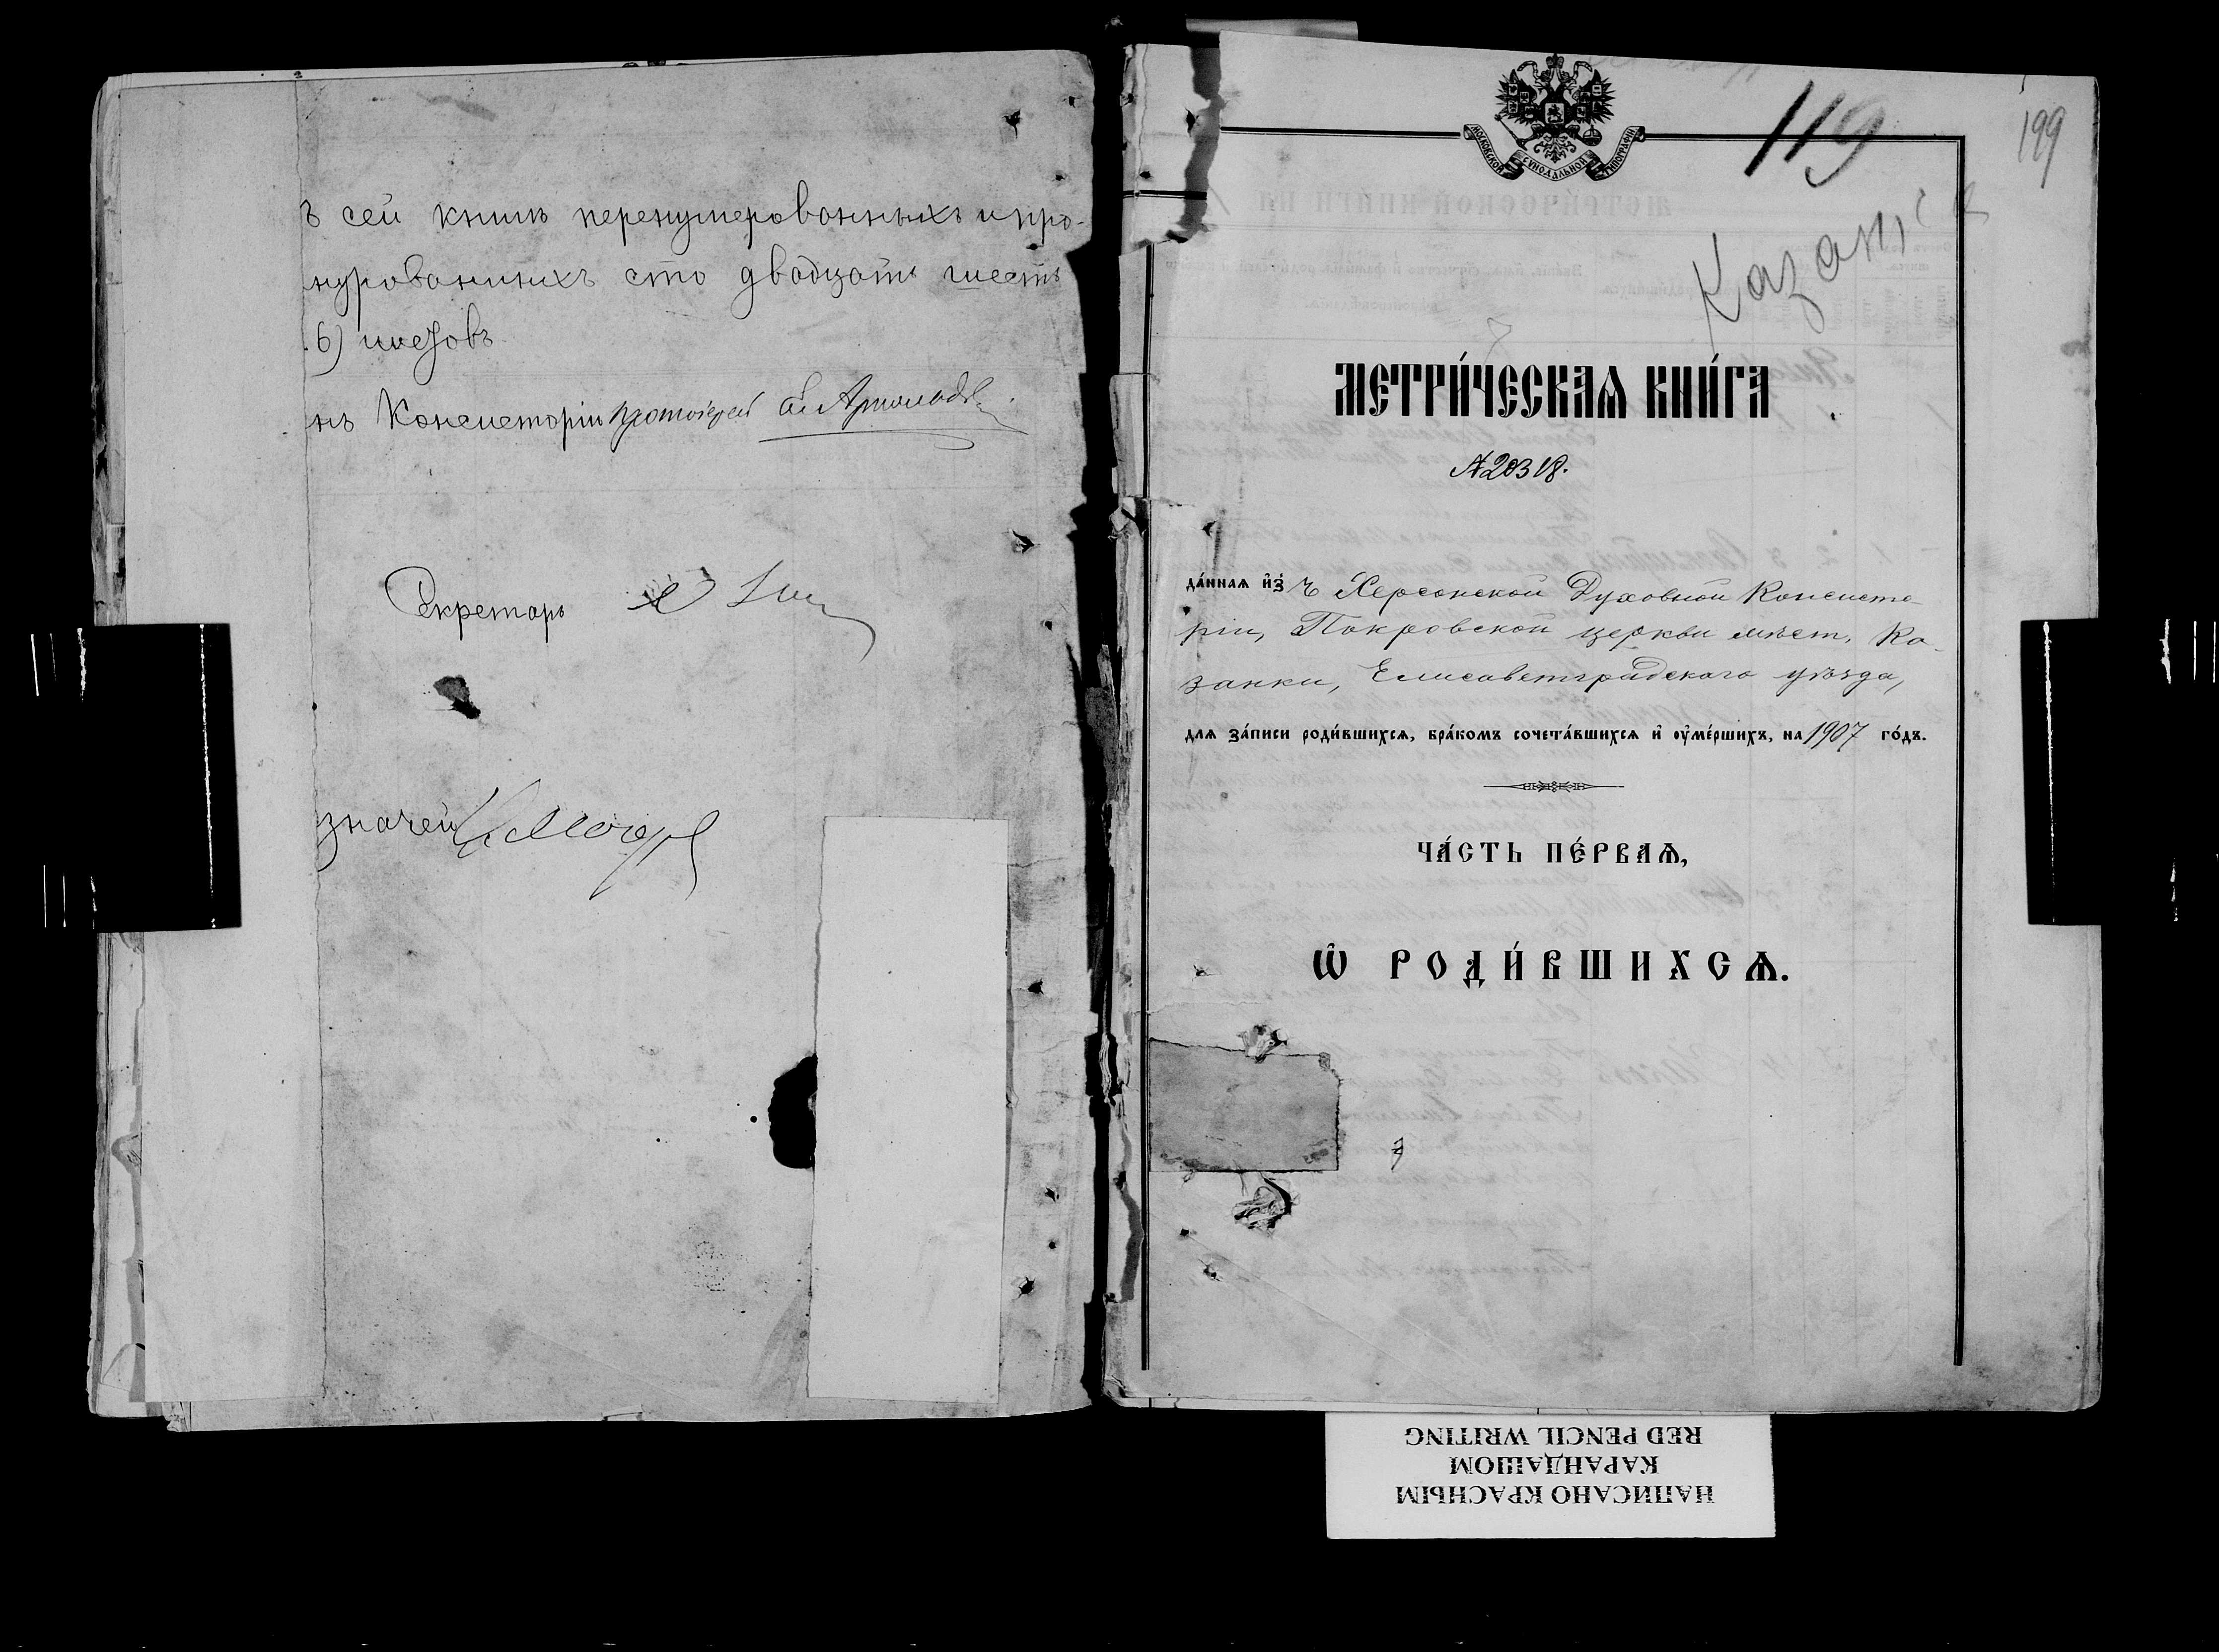 ъ сей книгѣ перенумерованныхъ и про-
нурованныхъ сто двадцать шесть
6) листовъ
нъ Консисторіи Протоіерей
Секретарь
значей
МОСКОВСКОЙ СѴНОДАЛЬНОЙ ТИПОГРАФІИ
119
199
Казан
МЕТРИ́ЧЕСКАѦ КНИ́ГА
№20318.
да́ннаѧ и҆з̾ ъ Херсонской Духовной Консисто-
ріи, Покровской церкви мѣст. Ка-
занки, Елисаветградскаго уѣзда,
длѧ за́писи роди́вшихсѧ, бра́комъ сочета́вшихсѧ и҆ оу҆ме́ршихъ, на 1907 го́дъ.
ЧА́СТЬ ПЕ́РВАѦ,
Ѽ РОДИ́ВШИХСѦ.
НАПИСАНО КРАСНЫМ
КАРАНДАШОМ
RED PENCIL WRITING